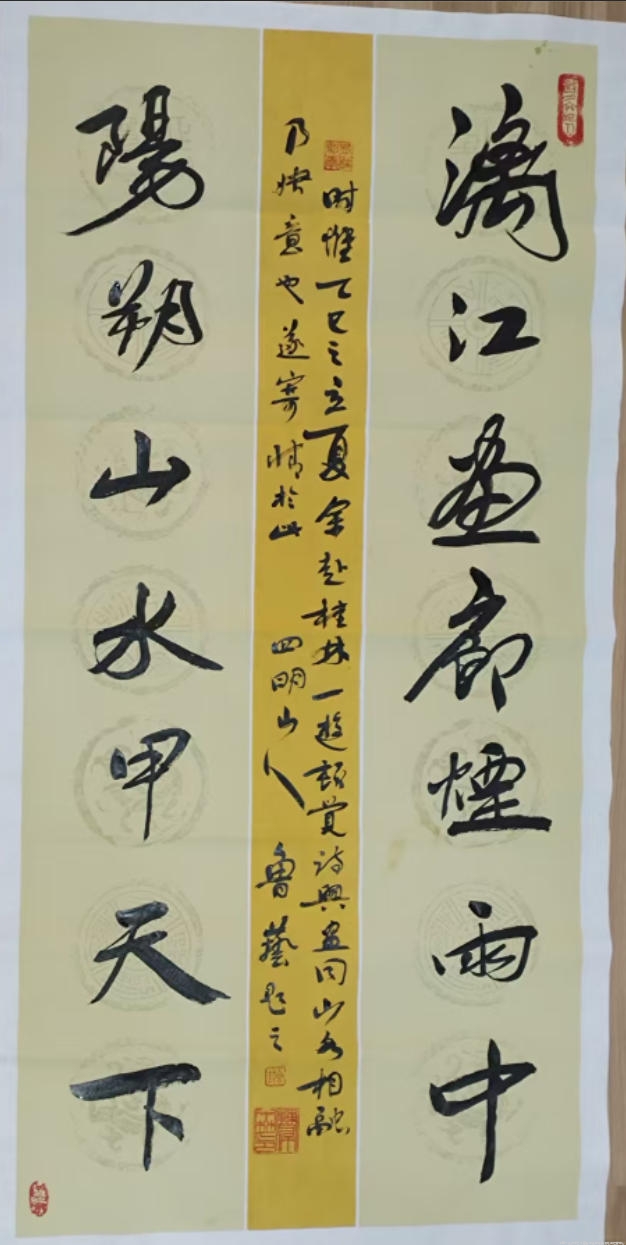 漓江畫廊煙雨中
時惟乙巳之立夏余赴桂林一遊頓覺詩興畫同山水相融
乃快意也遂寄情於此 四明山人 魯藝題之
陽朔山水甲天下